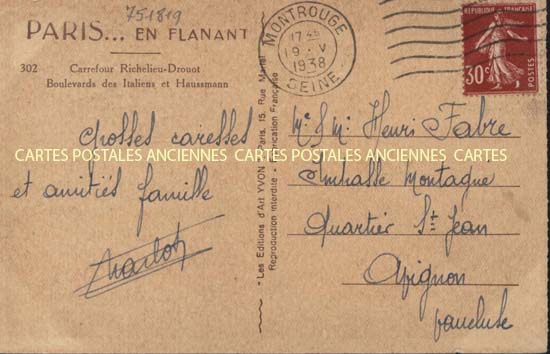 751819
PARIS... EN FLANANT
302 Carrefour Richelieu-Drouot
Boulevards des Italiens et Haussmann
grosses caresses
et amitiés famille
MONTROUGE
17 45
19 · V
1938
SEINE
REPUBLIQUE FRANÇAISE
30c
POSTES
"Les Editions d'Art YVON" Paris, 15, Rue Martel
Reproduction interdite - Fabrication Française
Mr & Me Henri Fabre
Impasse Montagne
Quartier St Jean
Avignon
Vaucluse
CARTES POSTALES ANCIENNES CARTES POSTALES ANCIENNES CARTES